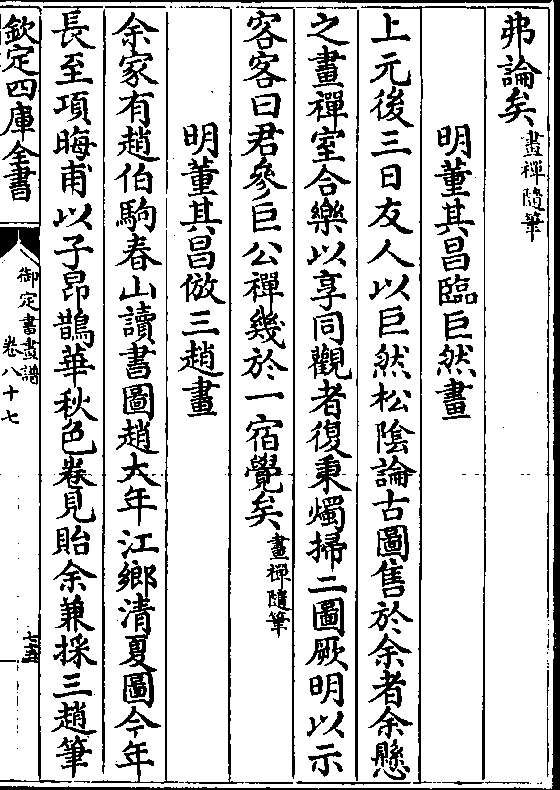 弗論矣畫禪隨筆
明董其昌臨巨然畫
上元後三日友人以巨然松陰論古圖售於余者余懸
之畫禪室合樂以享同觀者復秉燭掃二圖厥明以示
客客曰君參巨公禪幾於一宿覺矣畫禪隨筆
明董其昌倣三趙畫
余家有趙伯駒春山讀書圖趙大年江鄉清夏圖今年
長至項晦甫以子昂鵲華秋色卷見貽余兼採三趙筆
欽定四庫全書
御定書畫譜
卷八十七
七十五